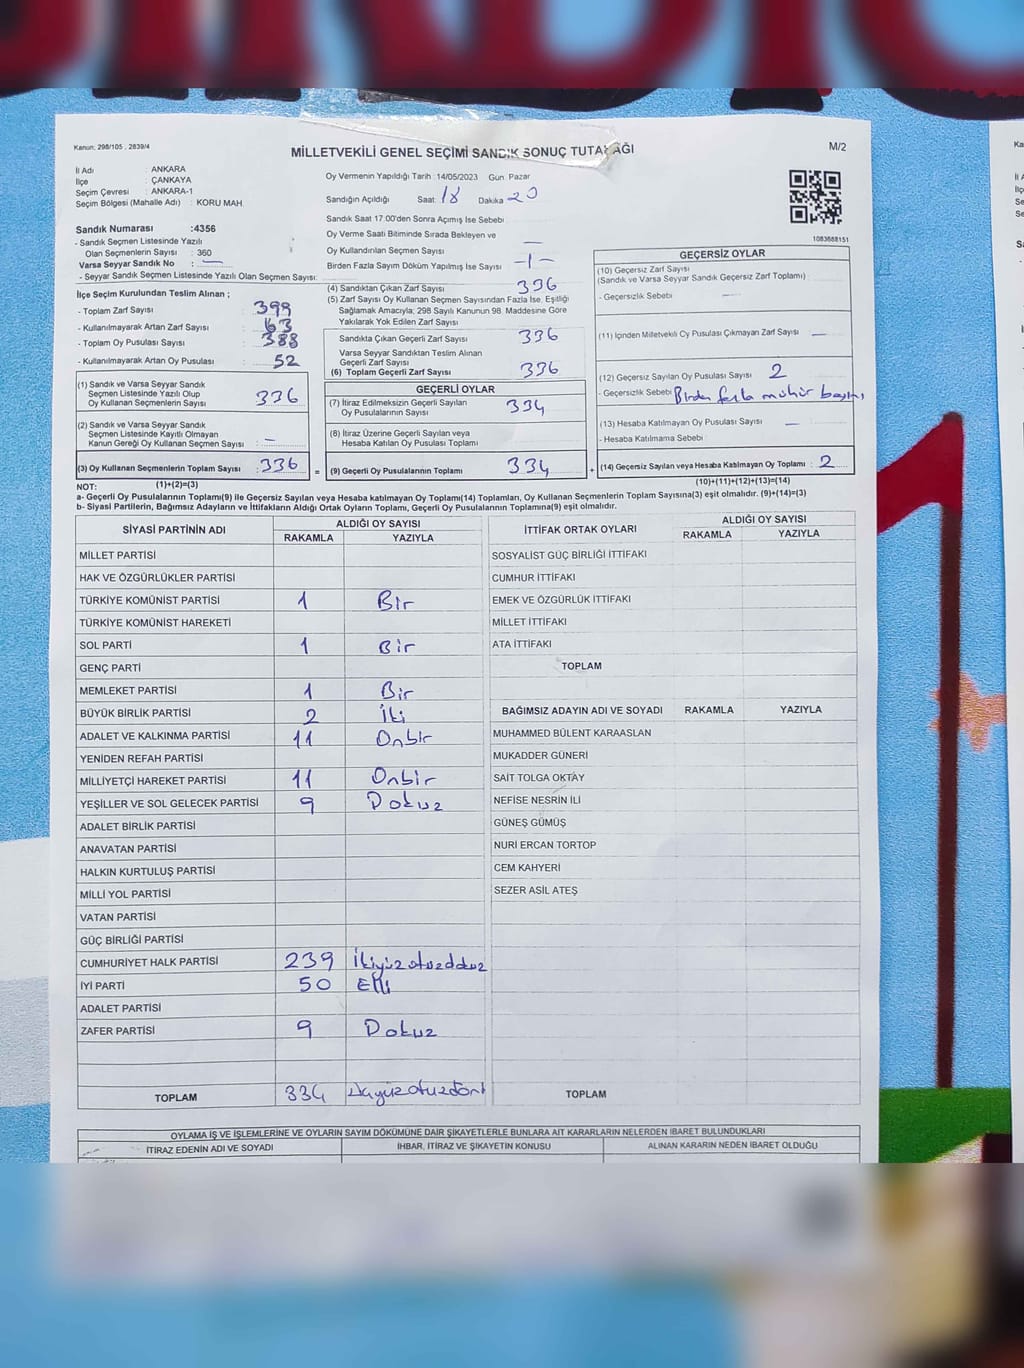 Kanun; 298/105 , 2839/4
MİLLETVEKİLİ GENEL SEÇİMİ SANDIK SONUÇ TUTANAĞI
M/2
İl Adı : ANKARA
İlçe : ÇANKAYA
Seçim Çevresi : ANKARA-1
Seçim Bölgesi (Mahalle Adı) : KORU MAH.
Oy Vermenin Yapıldığı Tarih : 14/05/2023 Gün: Pazar
Sandığın Açıldığı Saat: 18 Dakika 20
Sandık Saat 17:00'den Sonra Açılmış İse Sebebi
Oy Verme Saati Bitiminde Sırada Bekleyen ve
Oy Kullandırılan Seçmen Sayısı —
Birden Fazla Sayım Döküm Yapılmış İse Sayısı -1-
1083668151
Sandık Numarası :4356
- Sandık Seçmen Listesinde Yazılı
Olan Seçmenlerin Sayısı : 360
Varsa Seyyar Sandık No : —
- Seyyar Sandık Seçmen Listesinde Yazılı Olan Seçmen Sayısı:
İlçe Seçim Kurulundan Teslim Alınan ;
- Toplam Zarf Sayısı : 399
- Kullanılmayarak Artan Zarf Sayısı : 63
- Toplam Oy Pusulası Sayısı : 388
- Kullanılmayarak Artan Oy Pusulası : 52
(1) Sandık ve Varsa Seyyar Sandık
Seçmen Listesinde Yazılı Olup
Oy Kullanan Seçmenlerin Sayısı : 336
(2) Sandık ve Varsa Seyyar Sandık
Seçmen Listesinde Kayıtlı Olmayan
Kanun Gereği Oy Kullanan Seçmen Sayısı : —
(3) Oy Kullanan Seçmenlerin Toplam Sayısı :336
(4) Sandıktan Çıkan Zarf Sayısı 336
(5) Zarf Sayısı Oy Kullanan Seçmen Sayısından Fazla İse, Eşitliği
Sağlamak Amacıyla; 298 Sayılı Kanunun 98. Maddesine Göre
Yakılarak Yok Edilen Zarf Sayısı
Sandıkta Çıkan Geçerli Zarf Sayısı 336
Varsa Seyyar Sandıktan Teslim Alınan
Geçerli Zarf Sayısı
(6) Toplam Geçerli Zarf Sayısı 336
GEÇERLİ OYLAR
(7) İtiraz Edilmeksizin Geçerli Sayılan
Oy Pusulalarının Sayısı 334
(8) İtiraz Üzerine Geçerli Sayılan veya
Hesaba Katılan Oy Pusulası Toplamı
= (9) Geçerli Oy Pusulalarının Toplamı 334
GEÇERSİZ OYLAR
(10) Geçersiz Zarf Sayısı
(Sandık ve Varsa Seyyar Sandık Geçersiz Zarf Toplamı) :
- Geçersizlik Sebebi : —
(11) İçinden Milletvekili Oy Pusulası Çıkmayan Zarf Sayısı —
(12) Geçersiz Sayılan Oy Pusulası Sayısı : 2
- Geçersizlik Sebebi: Birden fazla mühür basımı
(13) Hesaba Katılmayan Oy Pusulası Sayısı : —
- Hesaba Katılmama Sebebi :
+ (14) Geçersiz Sayılan veya Hesaba Katılmayan Oy Toplamı : 2
NOT: (1)+(2)=(3)
(10)+(11)+(12)+(13)=(14)
a- Geçerli Oy Pusulalarının Toplamı(9) ile Geçersiz Sayılan veya Hesaba katılmayan Oy Toplamı(14) Toplamları, Oy Kullanan Seçmenlerin Toplam Sayısına(3) eşit olmalıdır. (9)+(14)=(3)
b- Siyasi Partilerin, Bağımsız Adayların ve İttifakların Aldığı Ortak Oyların Toplamı, Geçerli Oy Pusulalarının Toplamına(9) eşit olmalıdır.
SİYASİ PARTİNİN ADI ALDIĞI OY SAYISI
RAKAMLA YAZIYLA
MİLLET PARTİSİ
HAK VE ÖZGÜRLÜKLER PARTİSİ
TÜRKİYE KOMÜNİST PARTİSİ 1 Bir
TÜRKİYE KOMÜNİST HAREKETİ
SOL PARTİ 1 Bir
GENÇ PARTİ
MEMLEKET PARTİSİ 1 Bir
BÜYÜK BİRLİK PARTİSİ 2 İki
ADALET VE KALKINMA PARTİSİ 11 Onbir
YENİDEN REFAH PARTİSİ
MİLLİYETÇİ HAREKET PARTİSİ 11 Onbir
YEŞİLLER VE SOL GELECEK PARTİSİ 9 Dokuz
ADALET BİRLİK PARTİSİ
ANAVATAN PARTİSİ
HALKIN KURTULUŞ PARTİSİ
MİLLİ YOL PARTİSİ
VATAN PARTİSİ
GÜÇ BİRLİĞİ PARTİSİ
CUMHURİYET HALK PARTİSİ 239 İkiyüzotuzdokuz
İYİ PARTİ 50 Elli
ADALET PARTİSİ
ZAFER PARTİSİ 9 Dokuz
TOPLAM 334 üçyüzotuzdört
İTTİFAK ORTAK OYLARI ALDIĞI OY SAYISI
RAKAMLA YAZIYLA
SOSYALİST GÜÇ BİRLİĞİ İTTİFAKI
CUMHUR İTTİFAKI
EMEK VE ÖZGÜRLÜK İTTİFAKI
MİLLET İTTİFAKI
ATA İTTİFAKI
TOPLAM
BAĞIMSIZ ADAYIN ADI VE SOYADI RAKAMLA YAZIYLA
MUHAMMED BÜLENT KARAASLAN
MUKADDER GÜNERİ
SAİT TOLGA OKTAY
NEFİSE NESRİN İLİ
GÜNEŞ GÜMÜŞ
NURİ ERCAN TORTOP
CEM KAHYERİ
SEZER ASİL ATEŞ
TOPLAM
OYLAMA İŞ VE İŞLEMLERİNE VE OYLARIN SAYIM DÖKÜMÜNE DAİR ŞİKAYETLERLE BUNLARA AİT KARARLARIN NELERDEN İBARET BULUNDUKLARI
İTİRAZ EDENİN ADI VE SOYADI İHBAR, İTİRAZ VE ŞİKAYETİN KONUSU ALINAN KARARIN NEDEN İBARET OLDUĞU